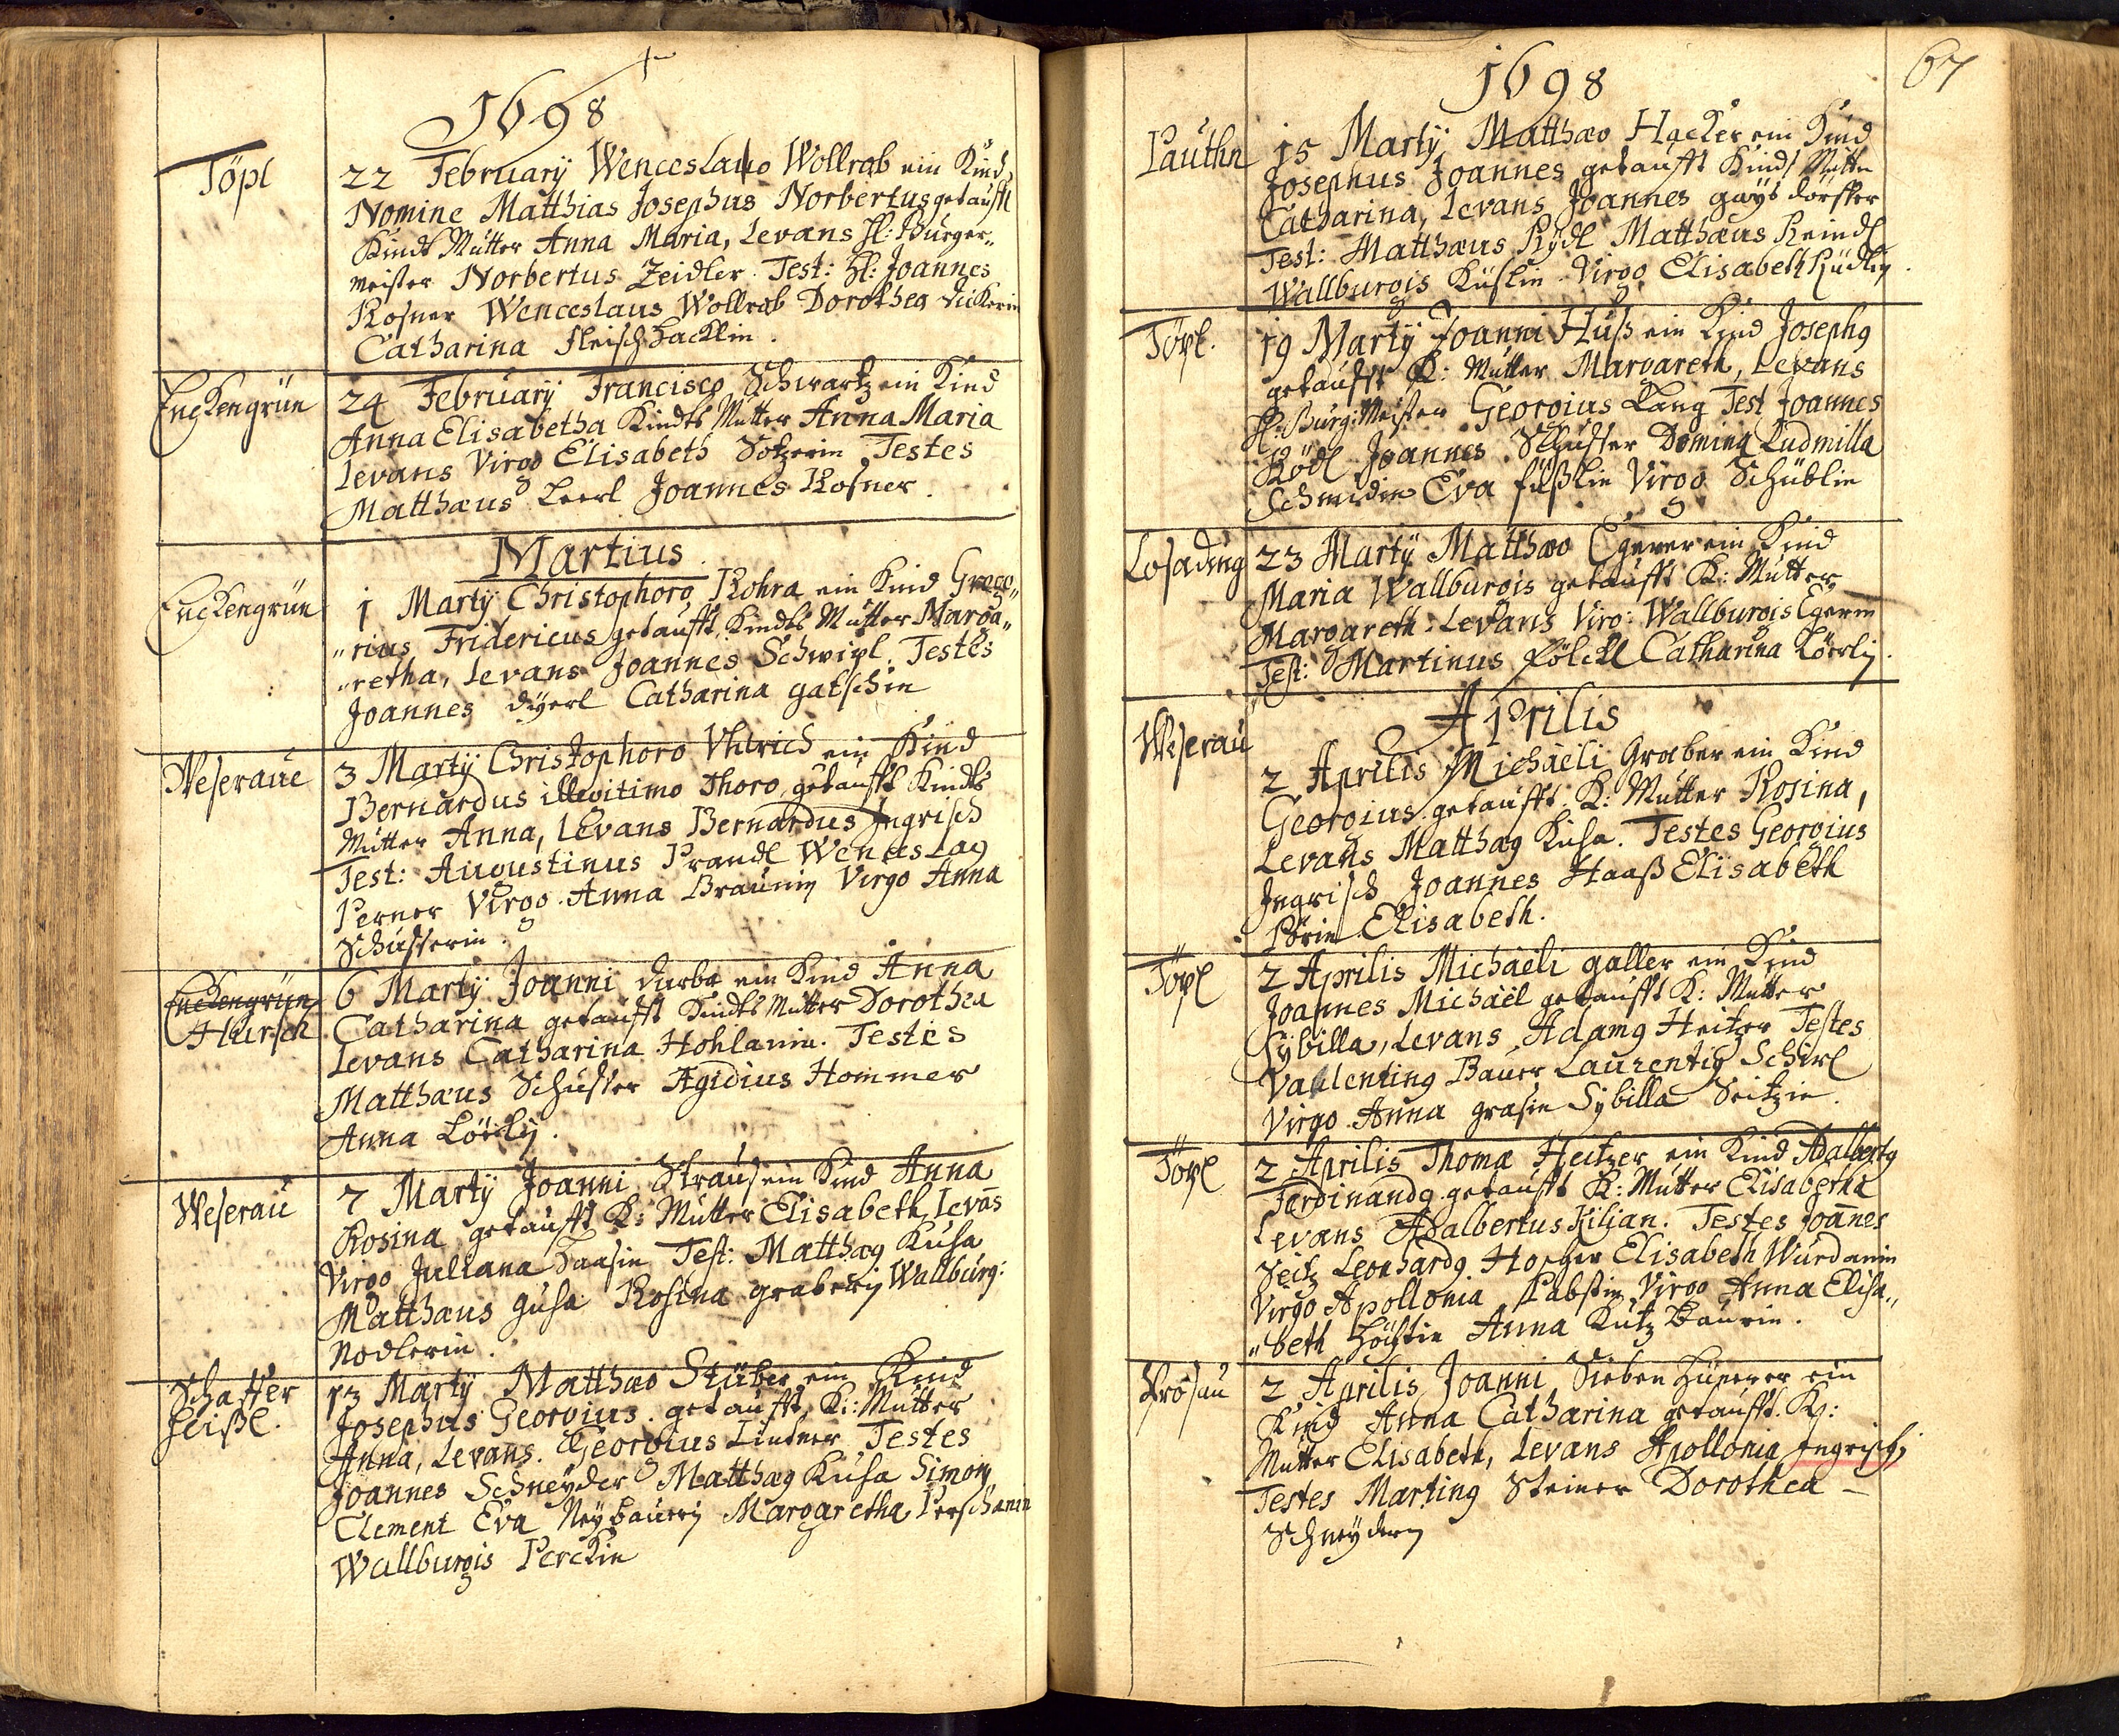 1698
Töpl
22 February Wenceslauo Wollrab ein Kind
Nomine Matthias Josephus Norbertus getaufft
Kindts Mutter Anna Maria, Levans H: Burger„
meister Norbertus Zeidler. Test: H: Joannes
Rosner Wenceslaus Wollrab Dorothea
Catharina Fleischhacklin.
Enckengrün
24 February Francisco Schwartz ein Kind
Anna Elisabetha Kindts Mutter Anna Maria
Levans Virgo Elisabeth Testes
Matthæus Leerl Joannes Rosner.
Martius
Enckengrün
1 Martÿ Christophoro Rohra ein Kind Grego„
„rius Fridericus getaufft Kindts Mutter Marga„
„retha, Levans Joannes Schwipl. Testes
Joannes dÿerl Catharina gatschin
Weseraue
3 Martÿ Christophoro Vhlrich ein Kind
Bernardus illegitimo Thoro, getaufft Kindts
Mutter Anna, Levans Bernardus Ingrisch
Test: Augustinus Prandl Wenceslag
Perner Virgo Anna Braunin Virgo Anna
Schusserin.
Enckengrün
Hursch
6 Martÿ Joanni ein Kind Anna
Catharina getaufft Kindts Mutter Dorothea
Levans Catharina Hohlanin. Testes
Matthæus Schusser Agidius Hommer
Anna
Weserau
7 Martÿ Joanni Straus ein Kind Anna
Rosina getaufft K: Mutter Elisabeth, Levãs
Virgo Juliana Haasin Test: Matthæg Kusa
Matthæus gusa Rosina graberin Wallburg:
Nodlerin.
Schaffer
heißl.
13 Martÿ Matthæo Stüber ein Kind
Josephus Georgius getaufft, K: Mutter
Anna, Levans. Georgius Lintner Testes
Joannes Schneÿder Matthæg Kusa Simon
Clement Eva Neÿbaurin Margaretha Perschanin
Wallburgis Perckin
1698
67
Pauthn
15 Martÿ Matthæo Hacker ein Kind
Josephus Joannes getaufft Kindts Mutter
Catharina, Levans Joannes gaÿsdorffer
Test: Matthæus Rÿdl Matthæus Reindl
Wallburgis Virgo Elisabeth Rüdlin.
Töpl.
19 Martÿ Joanni Huß ein Kind Josephg
getaufft K: Mutter Margareth, Levans
H: Burg: Meister Georgius Lang Test Joannes
Rödl Joannes Schusser Domina Ludmilla
Schmidin Eva Füßlin Virgo Schüblin
Losading
23 Martÿ Matthæo Egerer ein Kind
Maria Wallburgis getaufft K: Mutter
Margareth. Levans Virg: Wallburgis Egerin
Test: Martinus Catharina Lörlin.
Aprilis
Weserau
2 Aprilis Michaëli Graber ein Kind
Georgius getaufft. K: Mutter Rosina,
Levans Matthæg Kusa. Testes Georgius
Ingrisch Joannes Haaß Elisabeth
Elisabeth.
Töpl
2 Aprilis Michaëli galler ein Kind
Joannes Michaël getaufft K: Mutter
Sÿbilla, Levans Adamg Heitzer Testes
Valenting Bauer Laurentig Schirl
Virgo Anna grasin Sÿbilla Seitzin.
Töpl
2 Aprilis Thomæ Heitzer ein Kind Adalbertg
Ferdinandg getaufft K: Mutter Elisabetha
Levans Adalbertus Kilian. Testes Joañes
Seitz Leonhardg Elisabeth Wurdanin
Virgo Apollonia Pabstin Virgo Anna Elisa„
„beth Anna Kutzbaurin.
Prosau
2 Aprilis Joanni Siebenhünerer ein
Kind Anna Catharina getaufft. K:
Mutter Elisabeth, Levans Apollonia Ingrisch,
Testes Marting Steiner Dorothea –
Schneÿderin